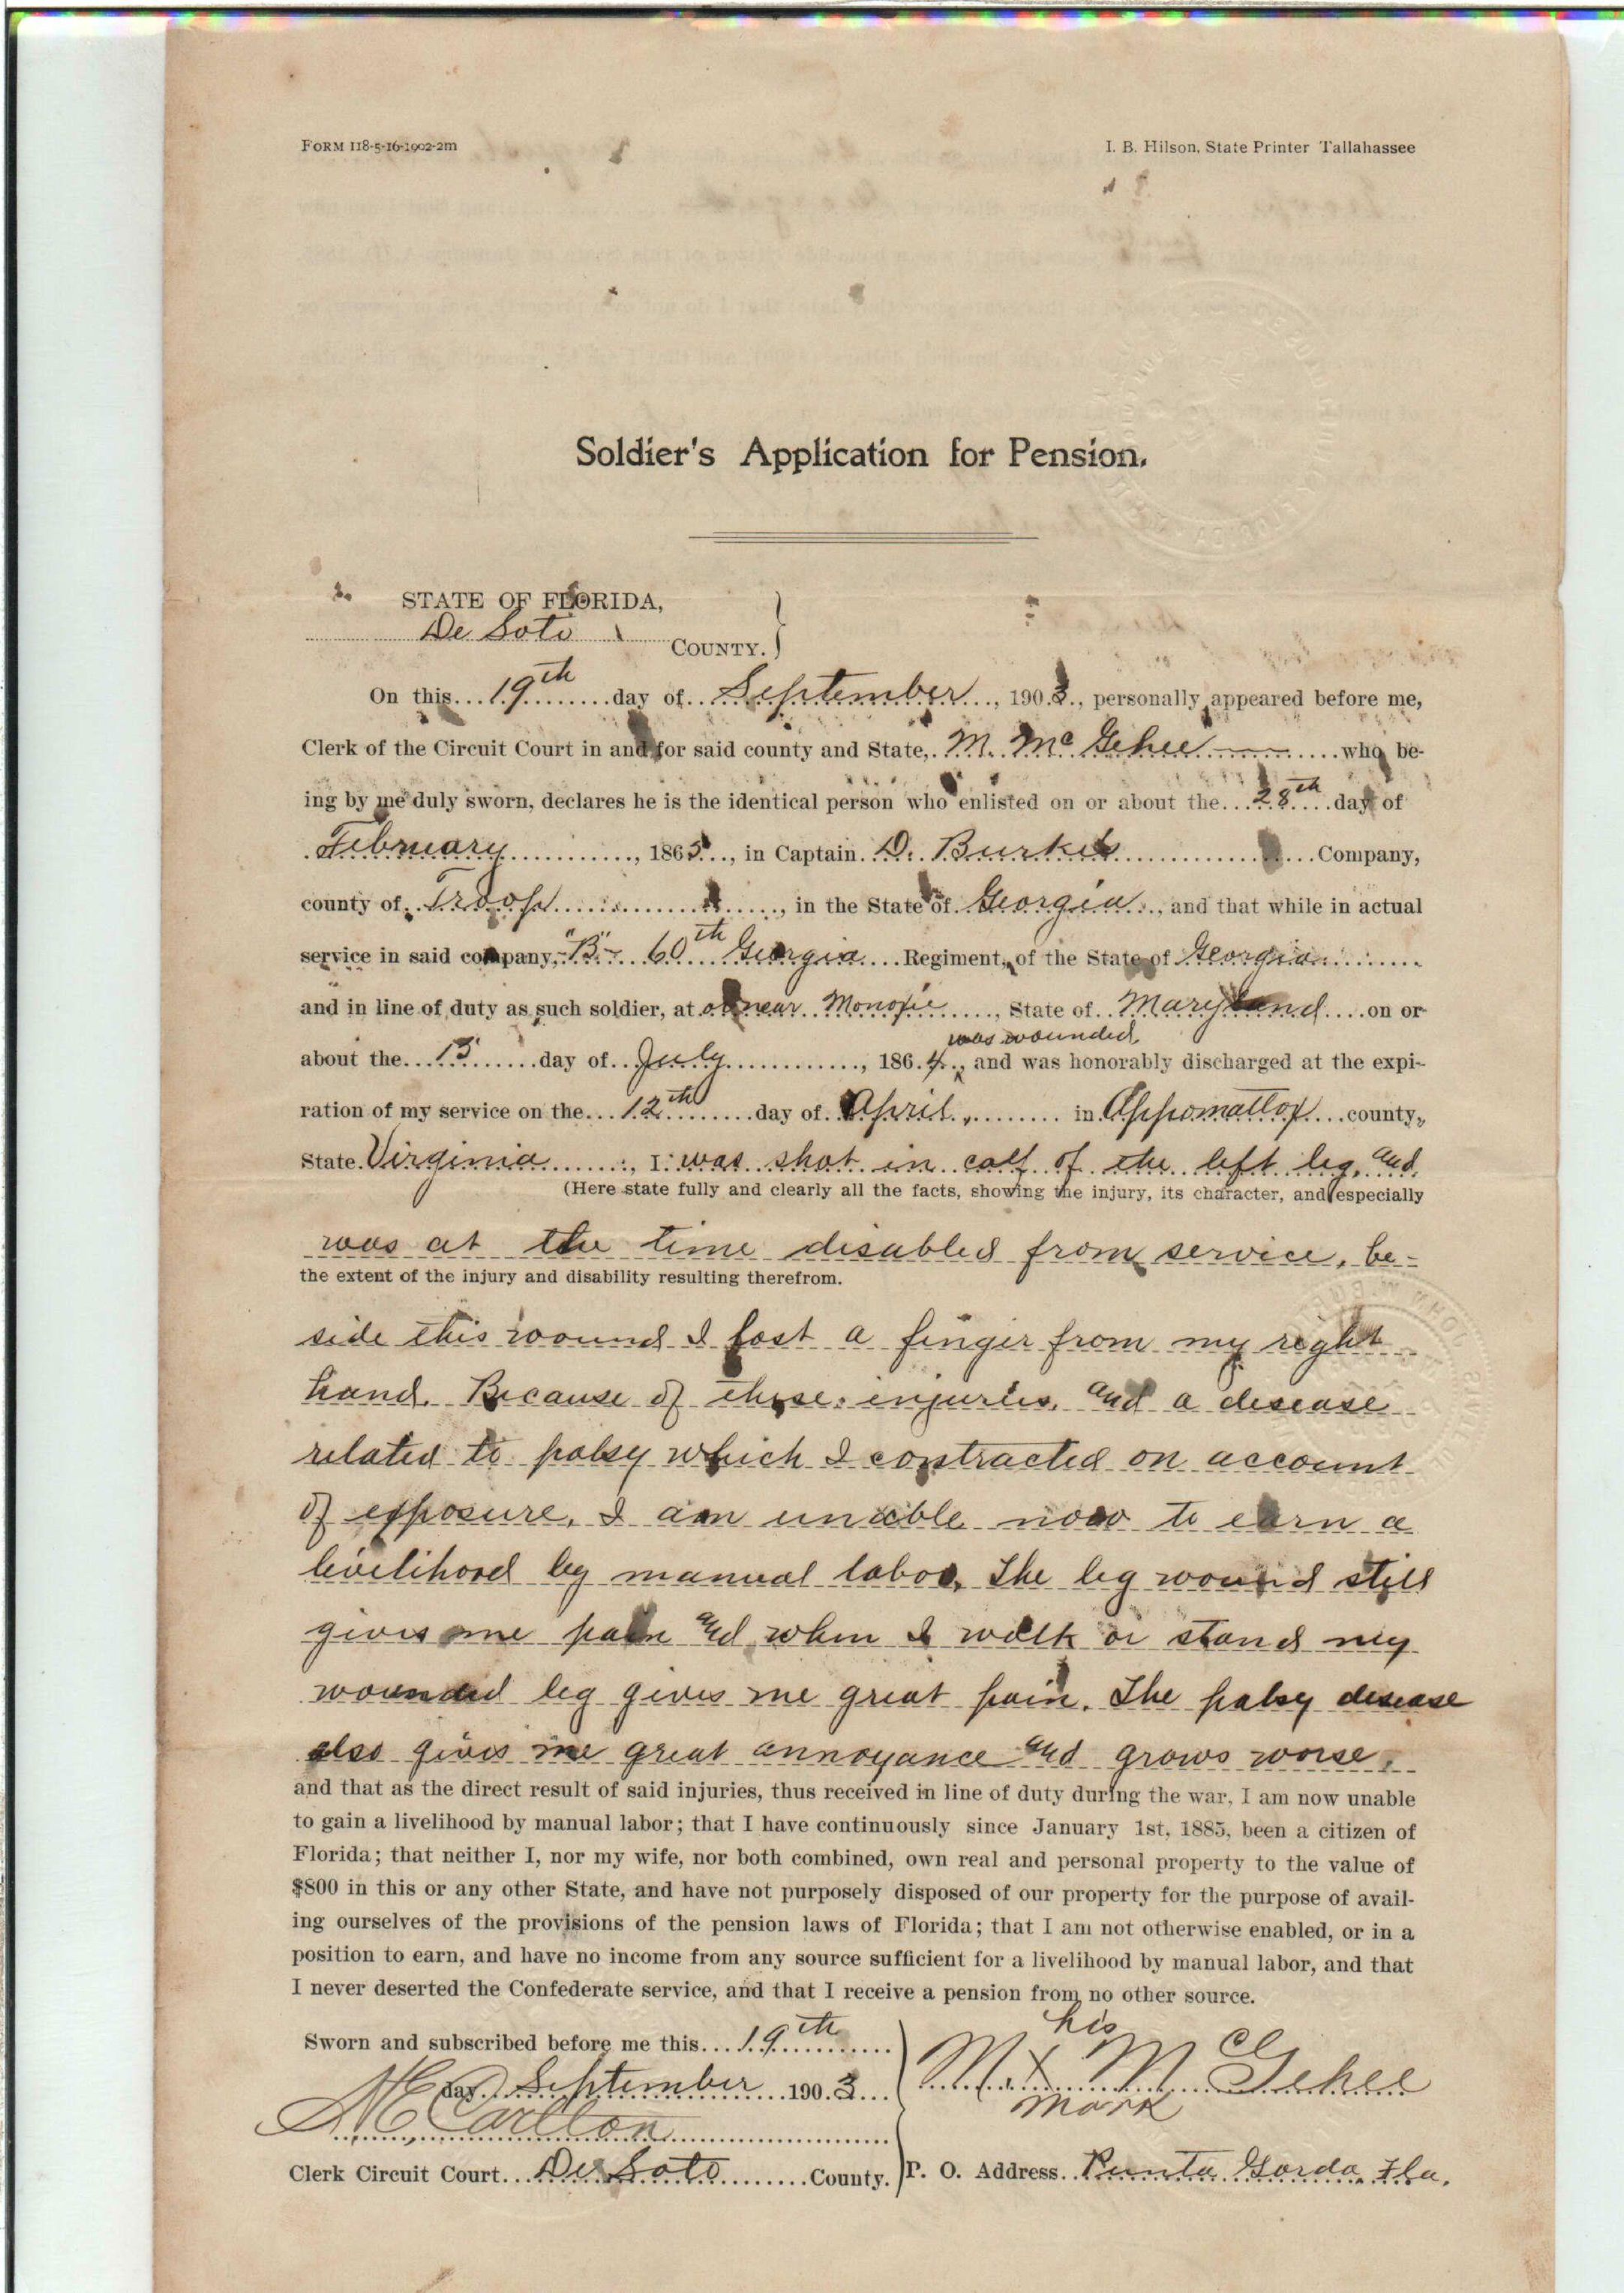 FORM 118-5-16-1902-2m
I. B. Hilson, State Printer Tallahassee
Soldier's Application for Pension.
STATE OF FLORIDA,
De Soto COUNTY.
On this 19th day of September, 1903, personally appeared before me,
Clerk of the Circuit Court in and for said county and State, M. McGehee who be-
ing by me duly sworn, declares he is the identical person who enlisted on or about the 28th day of
February, 1865, in Captain D. Burkes Company,
county of Troop, in the State of Georgia, and that while in actual
service in said company, "B" 60th Georgia Regiment, of the State of Georgia
and in line of duty as such soldier, at or near Monoxie, State of Maryland on or
was wounded,
about the 15 day of July, 1864, and was honorably discharged at the expi-
ration of my service on the 12th day of April, in Appomattox county,
State Virginia, I was shot in calf of the left leg, and
(Here state fully and clearly all the facts, showing the injury, its character, and especially
was at the time disabled from service, be-
the extent of the injury and disability resulting therefrom.
side this wound I lost a finger from my right
hand. Because of these injuries, and a disease
related to palsy which I contracted on account
of exposure, I am unable now to earn a
livelihood by manual labor, The leg wound still
gives me pain and when I walk or stand my
wounded leg gives me great pain. The palsy disease
also gives me great annoyance and grows worse,
and that as the direct result of said injuries, thus received in line of duty during the war, I am now unable
to gain a livelihood by manual labor; that I have continuously since January 1st, 1885, been a citizen of
Florida; that neither I, nor my wife, nor both combined, own real and personal property to the value of
$800 in this or any other State, and have not purposely disposed of our property for the purpose of avail-
ing ourselves of the provisions of the pension laws of Florida; that I am not otherwise enabled, or in a
position to earn, and have no income from any source sufficient for a livelihood by manual labor, and that
I never deserted the Confederate service, and that I receive a pension from no other source.
Sworn and subscribed before me this 19th
his
day September 1903
M. X McGehee
mark
Carlton
Clerk Circuit Court De Soto County.
P. O. Address Punta Gorda, Fla.